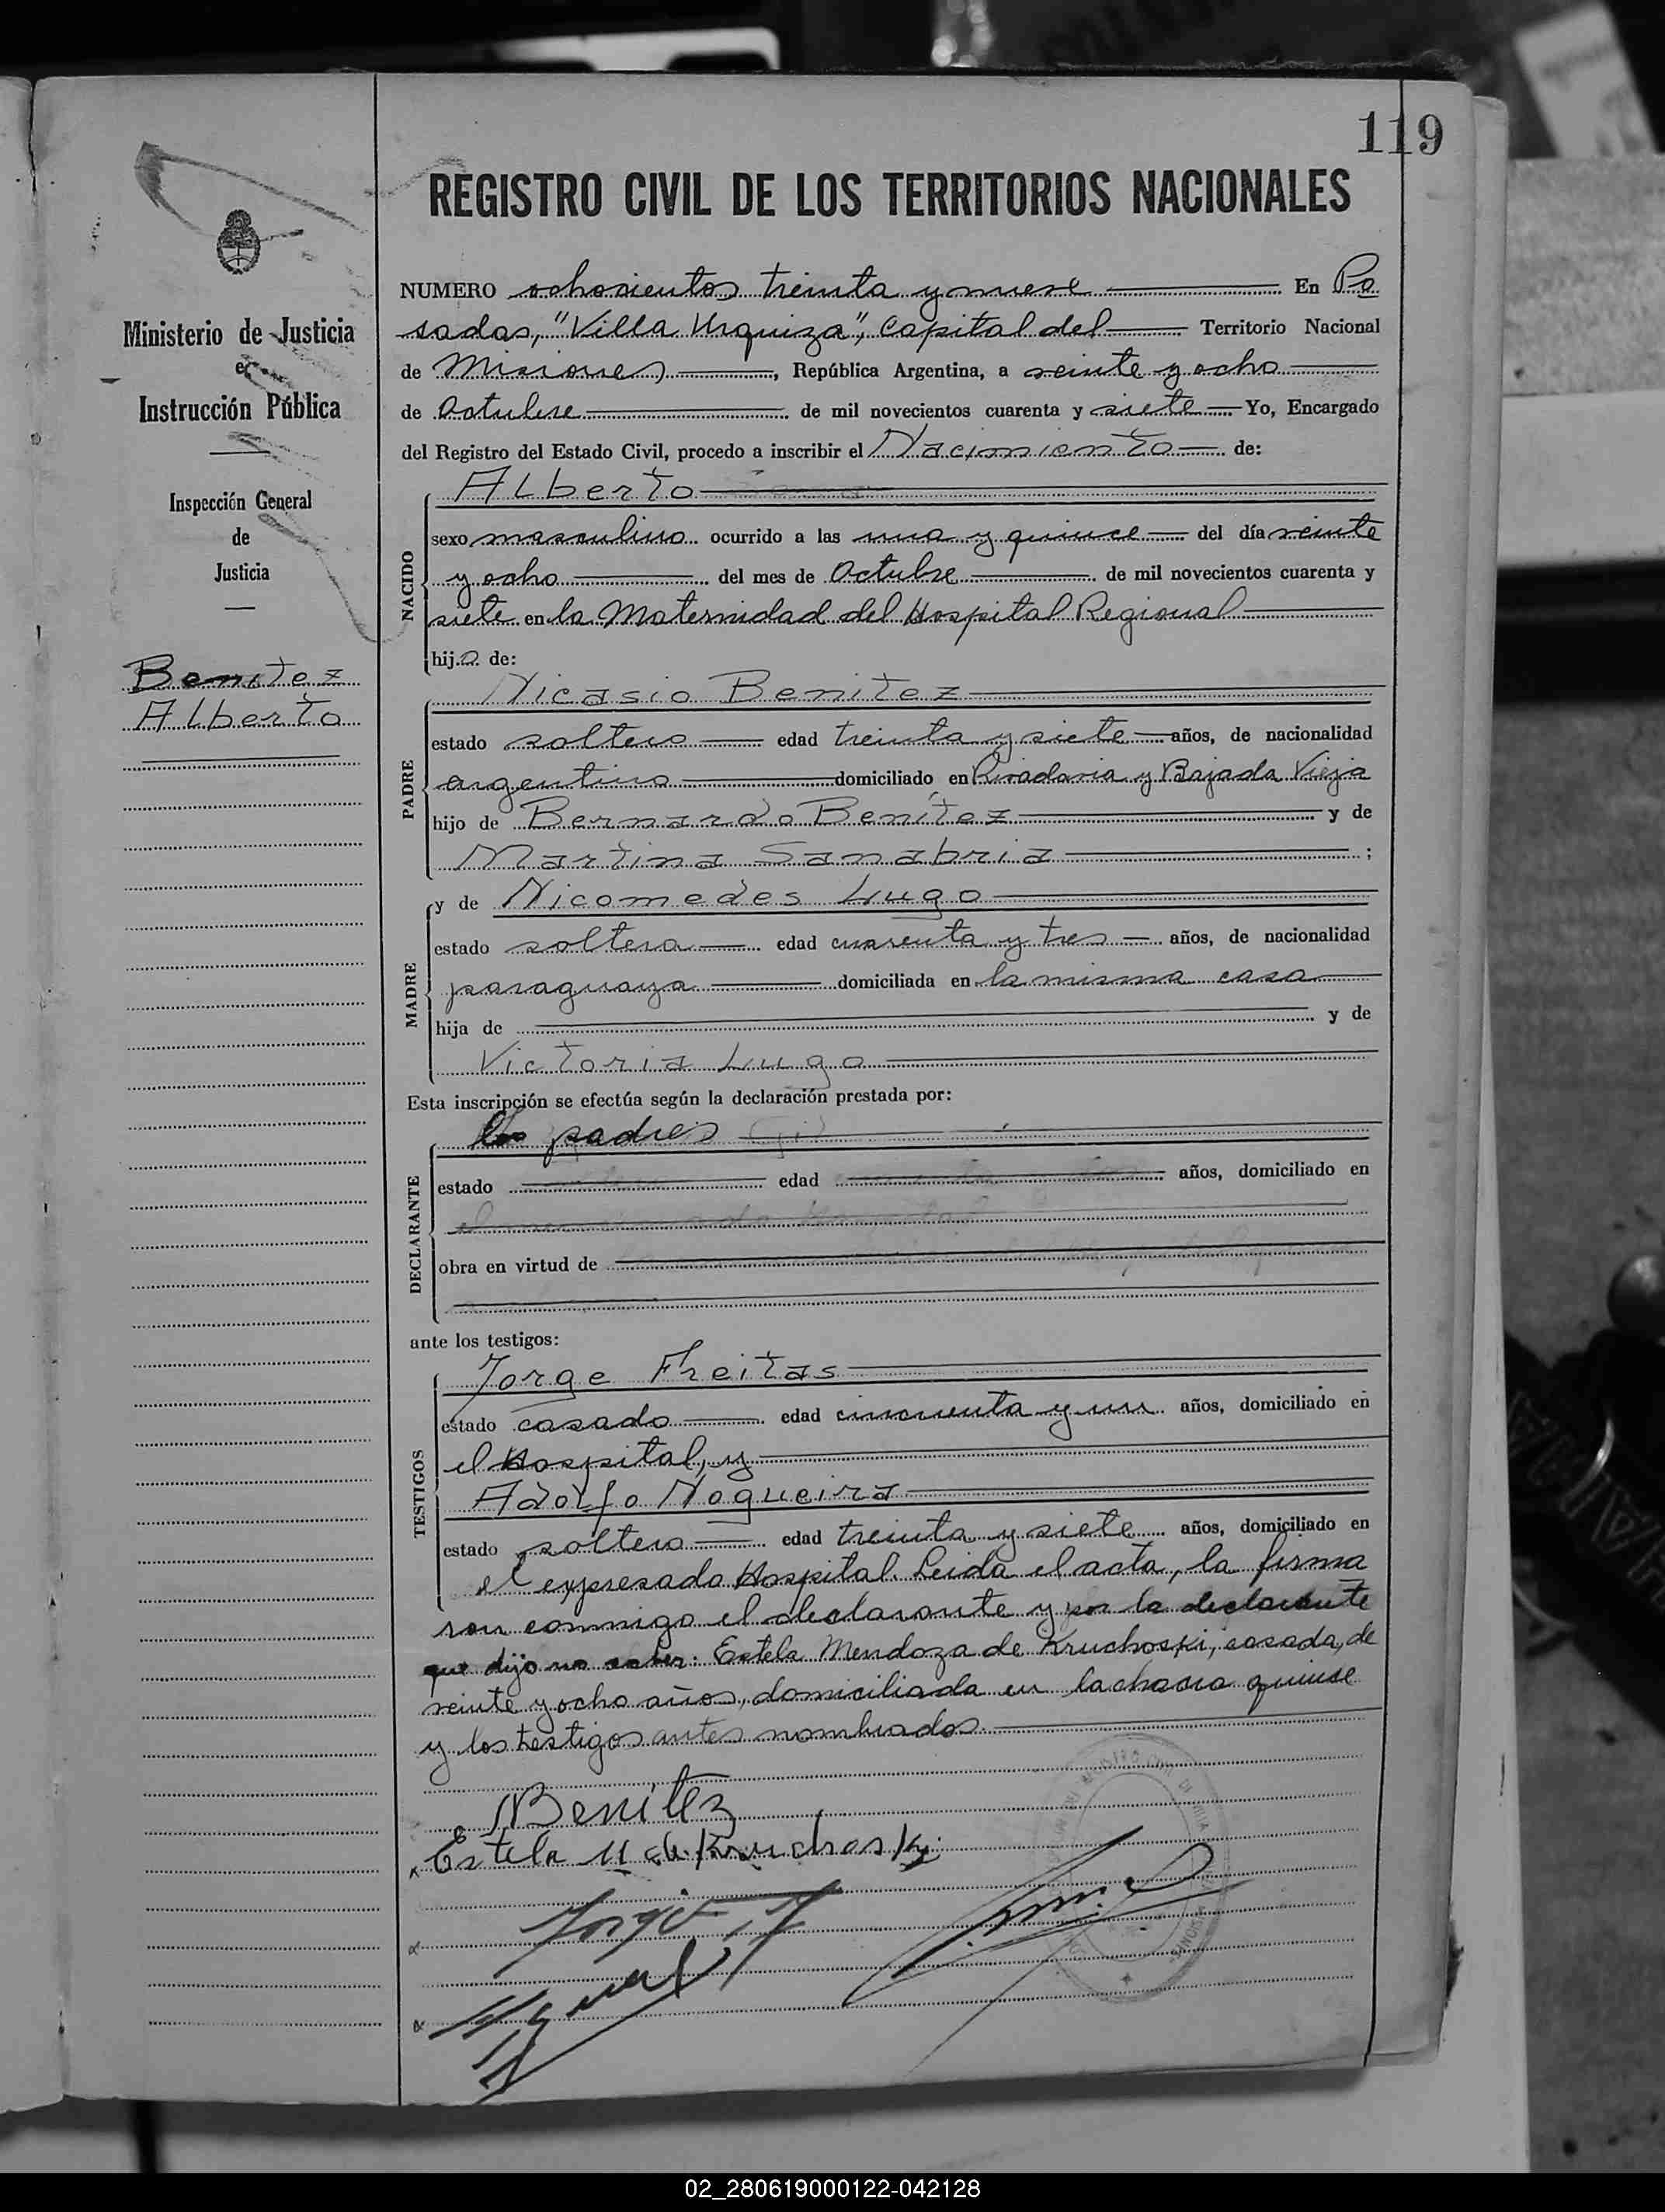 119
REGISTRO CIVIL DE LOS TERRITORIOS NACIONALES
Ministerio de Justicia
e
Instrucción Pública
Inspección General
de
Justicia
Benitez
Alberto
NUMERO ochocientos treinta y nueve En Po
sadas, "Villa Urquiza", Capital del Territorio Nacional
de Misiones, República Argentina, a veinte y ocho
de Octubre de mil novecientos cuarenta y siete Yo, Encargado
del Registro del Estado Civil, procedo a inscribir el Nacimiento de:
NACIDO
Alberto
sexo masculino ocurrido a las una y quince del día veinte
y ocho del mes de Octubre de mil novecientos cuarenta y
siete en la Maternidad del Hospital Regional
hijo de:
PADRE
Nicasio Benitez
estado soltero edad treinta y siete años, de nacionalidad
argentino domiciliado en Rivadavia y Bajada Vieja
hijo de Bernardo Benítez y de
Martina Sanabria ;
MADRE
y de Nicomedes Lugo
estado soltera edad cuarenta y tres años, de nacionalidad
paraguaya domiciliada en la misma casa
hija de y de
Victoria Lugo
Esta inscripción se efectúa según la declaración prestada por:
DECLARANTE
los padres
estado edad años, domiciliado en
obra en virtud de
ante los testigos:
TESTIGOS
Jorge Freitas
estado casado edad cincuenta y un años, domiciliado en
el Hospital, y
Adolfo Nogueira
estado soltero edad treinta y siete años, domiciliado en
el expresado Hospital. Leida el acta, la firma
ron conmigo el declarante y por la declarante
que dijo no saber: Estela Mendoza de Kruchoski, casada, de
veinte y ocho años, domiciliada en la chacra quince
y los testigos antes nombrados.
NBenítez
Estela M de Kruchoski
02_280619000122-042128